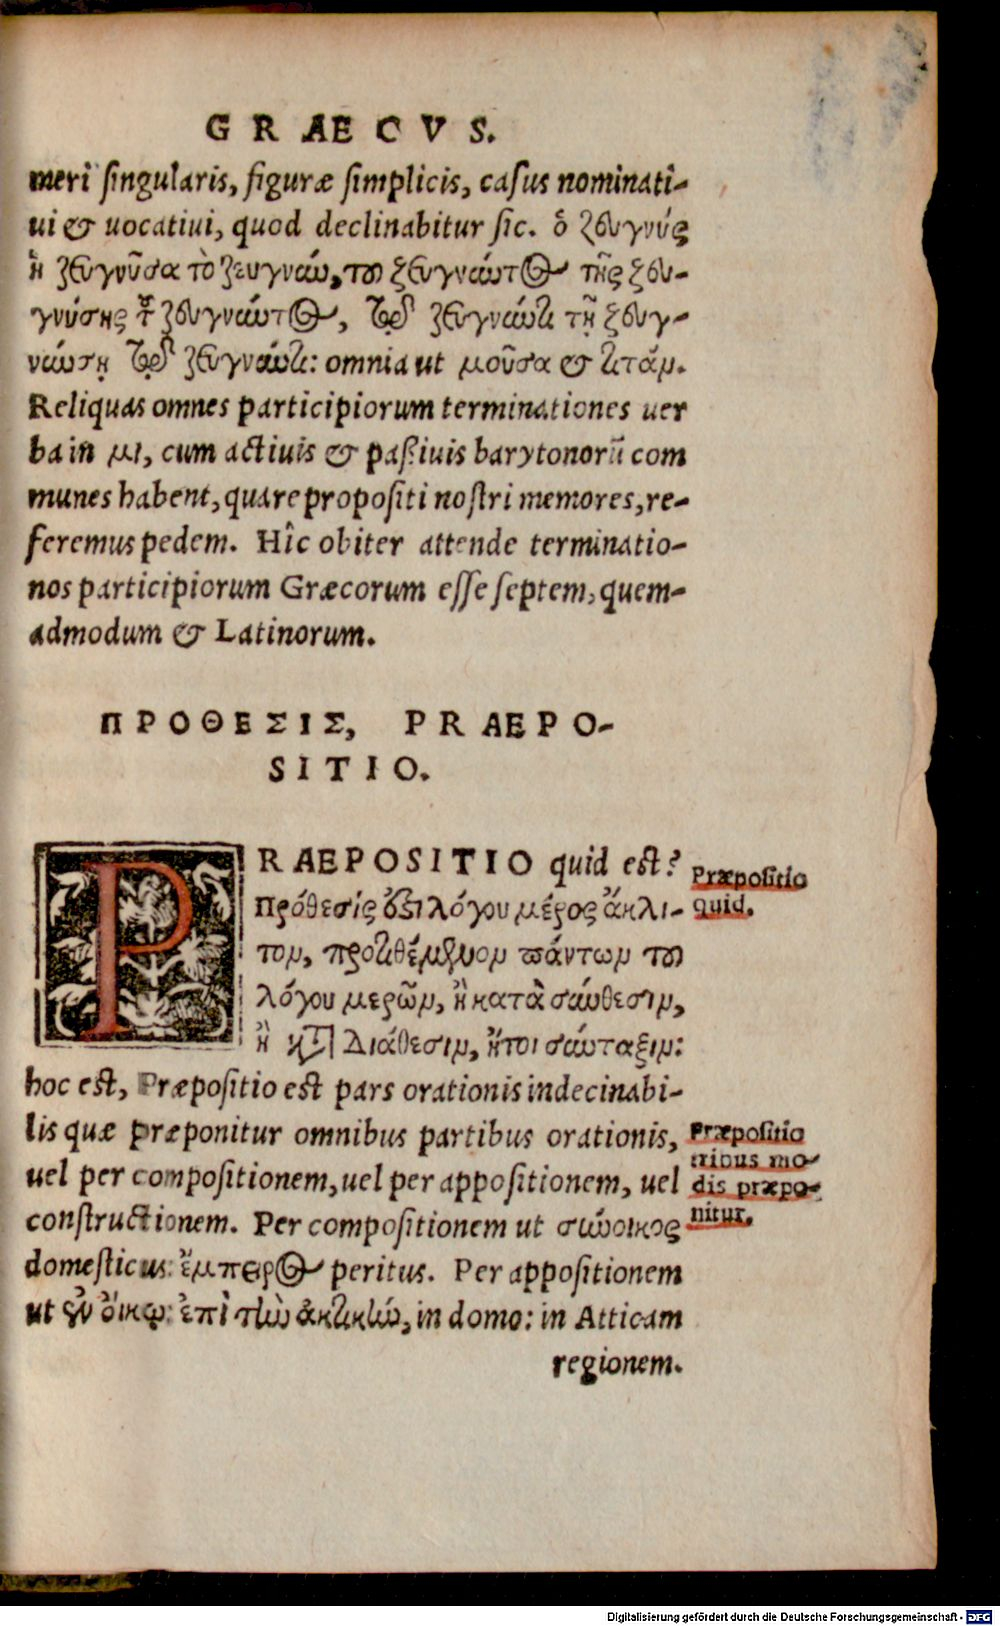 GRAECVS.
meri singularis, figuræ simplicis, casus nominati-
ui & uocatiui, quod declinabitur sic. ὁ ζευγνύς
ἡ ζευγνῦσα τὸ ζευγνύν, τοῦ ζευγνύντος τῆς ζευ-
γνύσης τοῦ ζευγνύντος, τῷ ζευγνύντι τῇ ζευγ-
νύσῃ τῷ ζευγνύντι: omnia ut μοῦσα & τιτάν.
Reliquas omnes participiorum terminationes uer
ba in μι, cum actiuis & paßiuis barytonorū com
munes habent, quare propositi nostri memores, re-
feremus pedem. Hîc obiter attende terminatio-
nos participiorum Græcorum esse septem, quem-
admodum & Latinorum.
ΠΡΟΘΕΣΙΣ, PRAEPO-
SITIO.
PRAEPOSITIO quid est?
Πρόθεσίς ἐστι λόγου μέρος ἄκλι-
τον, προτιθέμενον πάντων τοῦ
λόγου μερῶν, ἢ κατὰ σύνθεσιν,
ἢ κατὰ διάθεσιν, ἤτοι σύνταξιν:
hoc est, Præpositio est pars orationis indecinabi-
lis quæ præponitur omnibus partibus orationis,
uel per compositionem, uel per appositionem, uel
constructionem. Per compositionem ut σύνοικος
domesticus: ἔμπειρος peritus. Per appositionem
ut ἐν οἴκῳ: ἐπὶ τὴν ἀκτικὴν, in domo: in Atticam
regionem.
Præpositio
quid.
Præpositio
tribus mo-
dis præpo-
nitur.
Digitalisierung gefördert durch die Deutsche Forschungsgemeinschaft - DFG